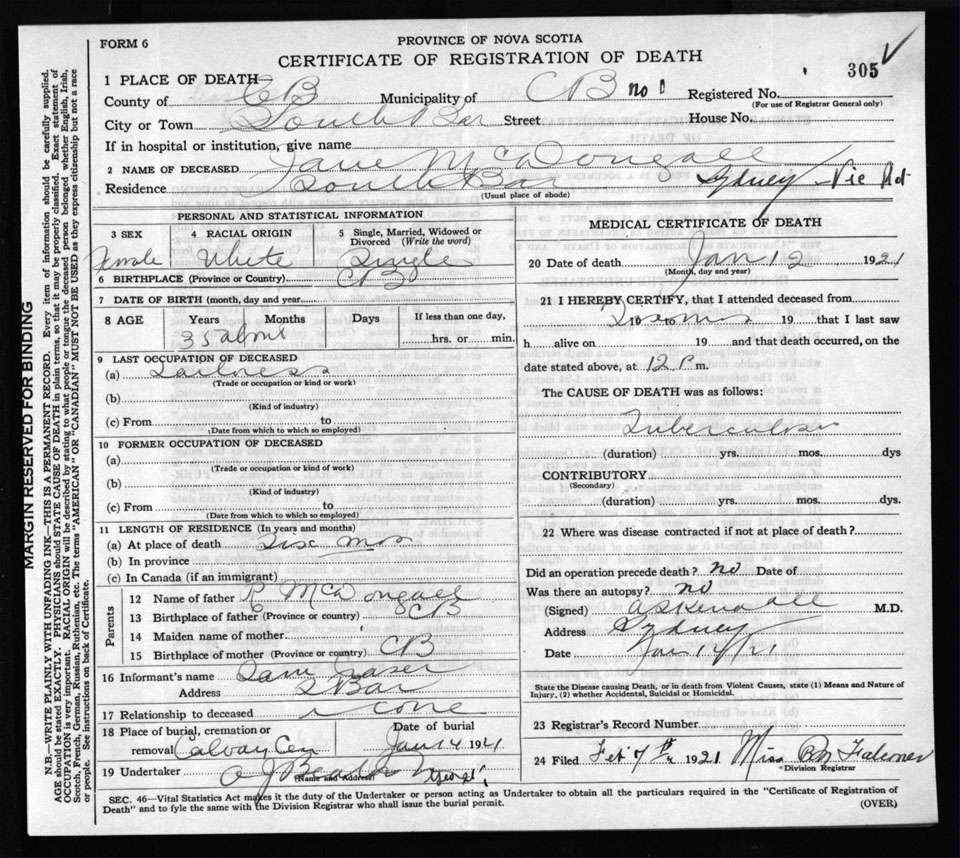 FORM 6
PROVINCE OF NOVA SCOTIA
CERTIFICATE OF REGISTRATION OF DEATH
305
1 PLACE OF DEATH
County of CB Municipality of CB no 1 Registered No.
(For use of Registrar General only)
City or Town South Bar Street House No.
If in hospital or institution, give name
2 NAME OF DECEASED Jane McDougall
Residence South Bar Sydney Vic Rd
(Usual place of abode)
PERSONAL AND STATISTICAL INFORMATION
3 SEX 4 RACIAL ORIGIN 5 Single, Married, Widowed or Divorced (Write the word)
Female White Single
6 BIRTHPLACE (Province or Country) CB
7 DATE OF BIRTH (month, day and year)
8 AGE Years Months Days If less than one day,
35 about hrs. or min.
9 LAST OCCUPATION OF DECEASED
(a) Tailoress
(Trade or occupation or kind or work)
(b)
(Kind of industry)
(c) From to
(Date from which to which so employed)
10 FORMER OCCUPATION OF DECEASED
(a)
(Trade or occupation or kind of work)
(b)
(Kind of industry)
(c) From to
(Date from which to which so employed)
11 LENGTH OF RESIDENCE (In years and months)
(a) At place of death mos
(b) In province
(c) In Canada (if an immigrant)
Parents
12 Name of father R McDougall
13 Birthplace of father (Province or country) CB
14 Maiden name of mother
15 Birthplace of mother (Province or country) CB
16 Informant's name Fraser
Address S Bar
17 Relationship to deceased
18 Place of burial, cremation or removal Calvay Cem Date of burial Jan 14 1921
19 Undertaker
(Name and Address)
MEDICAL CERTIFICATE OF DEATH
20 Date of death Jan 12 1921
(Month, day and year)
21 I HEREBY CERTIFY, that I attended deceased from
19 to 19 that I last saw
h alive on 19 and that death occurred, on the
date stated above, at 12 P m.
The CAUSE OF DEATH was as follows:
Tuberculosis
(duration) yrs. mos. dys
CONTRIBUTORY
(Secondary)
(duration) yrs. mos. dys.
22 Where was disease contracted if not at place of death?
Did an operation precede death? no Date of
Was there an autopsy? no
(Signed) A S Kendall M.D.
Address Sydney
Date Jan 14/21
State the Disease causing Death, or in death from Violent Causes, state (1) Means and Nature of
Injury, (2) whether Accidental, Suicidal or Homicidal.
23 Registrar's Record Number
24 Filed Feb 7th 1921 Miss Falconer
Division Registrar
SEC. 46—Vital Statistics Act makes it the duty of the Undertaker or person acting as Undertaker to obtain all the particulars required in the "Certificate of Registration of
Death" and to fyle the same with the Division Registrar who shall issue the burial permit.
(OVER)
MARGIN RESERVED FOR BINDING
N.B.—WRITE PLAINLY WITH UNFADING INK—THIS IS A PERMANENT RECORD. Every item of information should be carefully supplied.
AGE should be stated EXACTLY. PHYSICIANS should STATE CAUSE OF DEATH in plain terms, so that it may be properly classified. Exact statement of
OCCUPATION is very important. RACIAL ORIGIN will be described by stating to what people or tongue the deceased person belonged whether English, Irish,
Scotch, French, German, Russian, Ruthenian, etc. The terms "AMERICAN" OR "CANADIAN" MUST NOT BE USED as they express citizenship but not a race
or people. See instructions on back of Certificate.